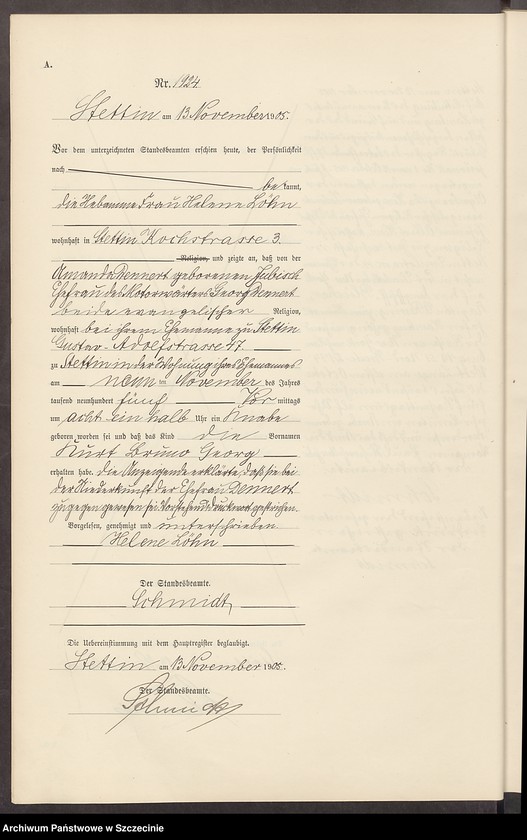 A.
Nr. 1924
Stettin am 13 November 1905.
Vor dem unterzeichneten Standesbeamten erschien heute, der Persönlichkeit
nach
bekannt,
die Hebamme Frau Helene Löhn
wohnhaft in Stettin Kochstrasse 3.
Religion, und zeigte an, daß von der
Amanda Dennert geborenen Jubisch
Ehefrau des Motorwärters Georg Dennert
beide evangelischer Religion,
wohnhaft bei ihrem Ehemanne zu Stettin
Gustav-Adolfstrasse 47.
zu Stettin in der Wohnung ihres Ehemannes
am neun ten November des Jahres
tausend neunhundert fünf Vor mittags
um acht ein halb Uhr ein Knabe
geboren worden sei und daß das Kind die Vornamen
Kurt Bruno Georg
erhalten habe. die Anzeigende erklärte, daß sie bei
der Niederkunft der Ehefrau Dennert
zugegen gewesen sei. Vorstehend 1 Druckwort gestrichen.
Vorgelesen, genehmigt und unterschrieben
Helene Löhn
Der Standesbeamte.
Schmidt
Die Uebereinstimmung mit dem Hauptregister beglaubigt.
Stettin am 13 November 1905.
Der Standesbeamte.
Schmidt
Archiwum Państwowe w Szczecinie